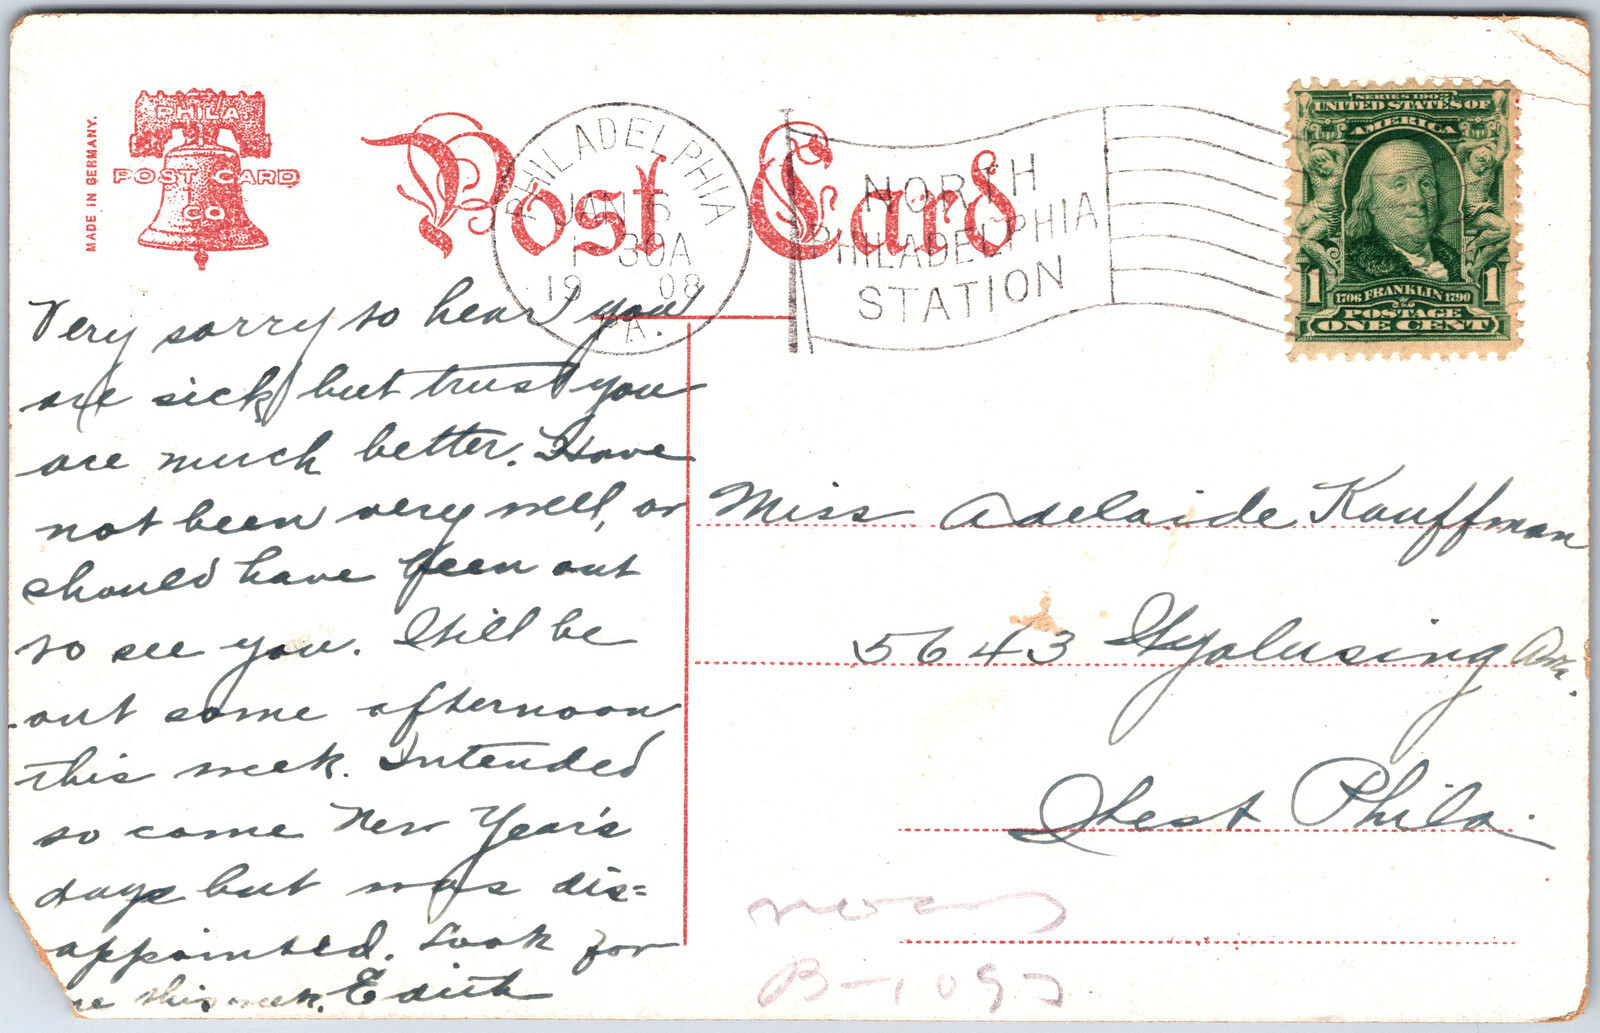 MADE IN GERMANY.
PHILA.
POST CARD
CO
Post Card
PHILADELPHIA
JAN 6
1 30A
19 08
PA.
NORTH
PHILADELPHIA
STATION
SERIES 1902
UNITED STATES OF
AMERICA
1 1
1706 FRANKLIN 1790
POSTAGE
ONE CENT
Very sorry to hear you
are sick, but trust you
are much better. Have
not been very well, or
should have been out
to see you. Will be
out some afternoon
this week. Intended
to come New Year's
days but was dis=
appointed. Look for
me this week. Edith
Miss Adelaide Kauffman
5643 Wyalusing Ave.
West Phila.
B-109